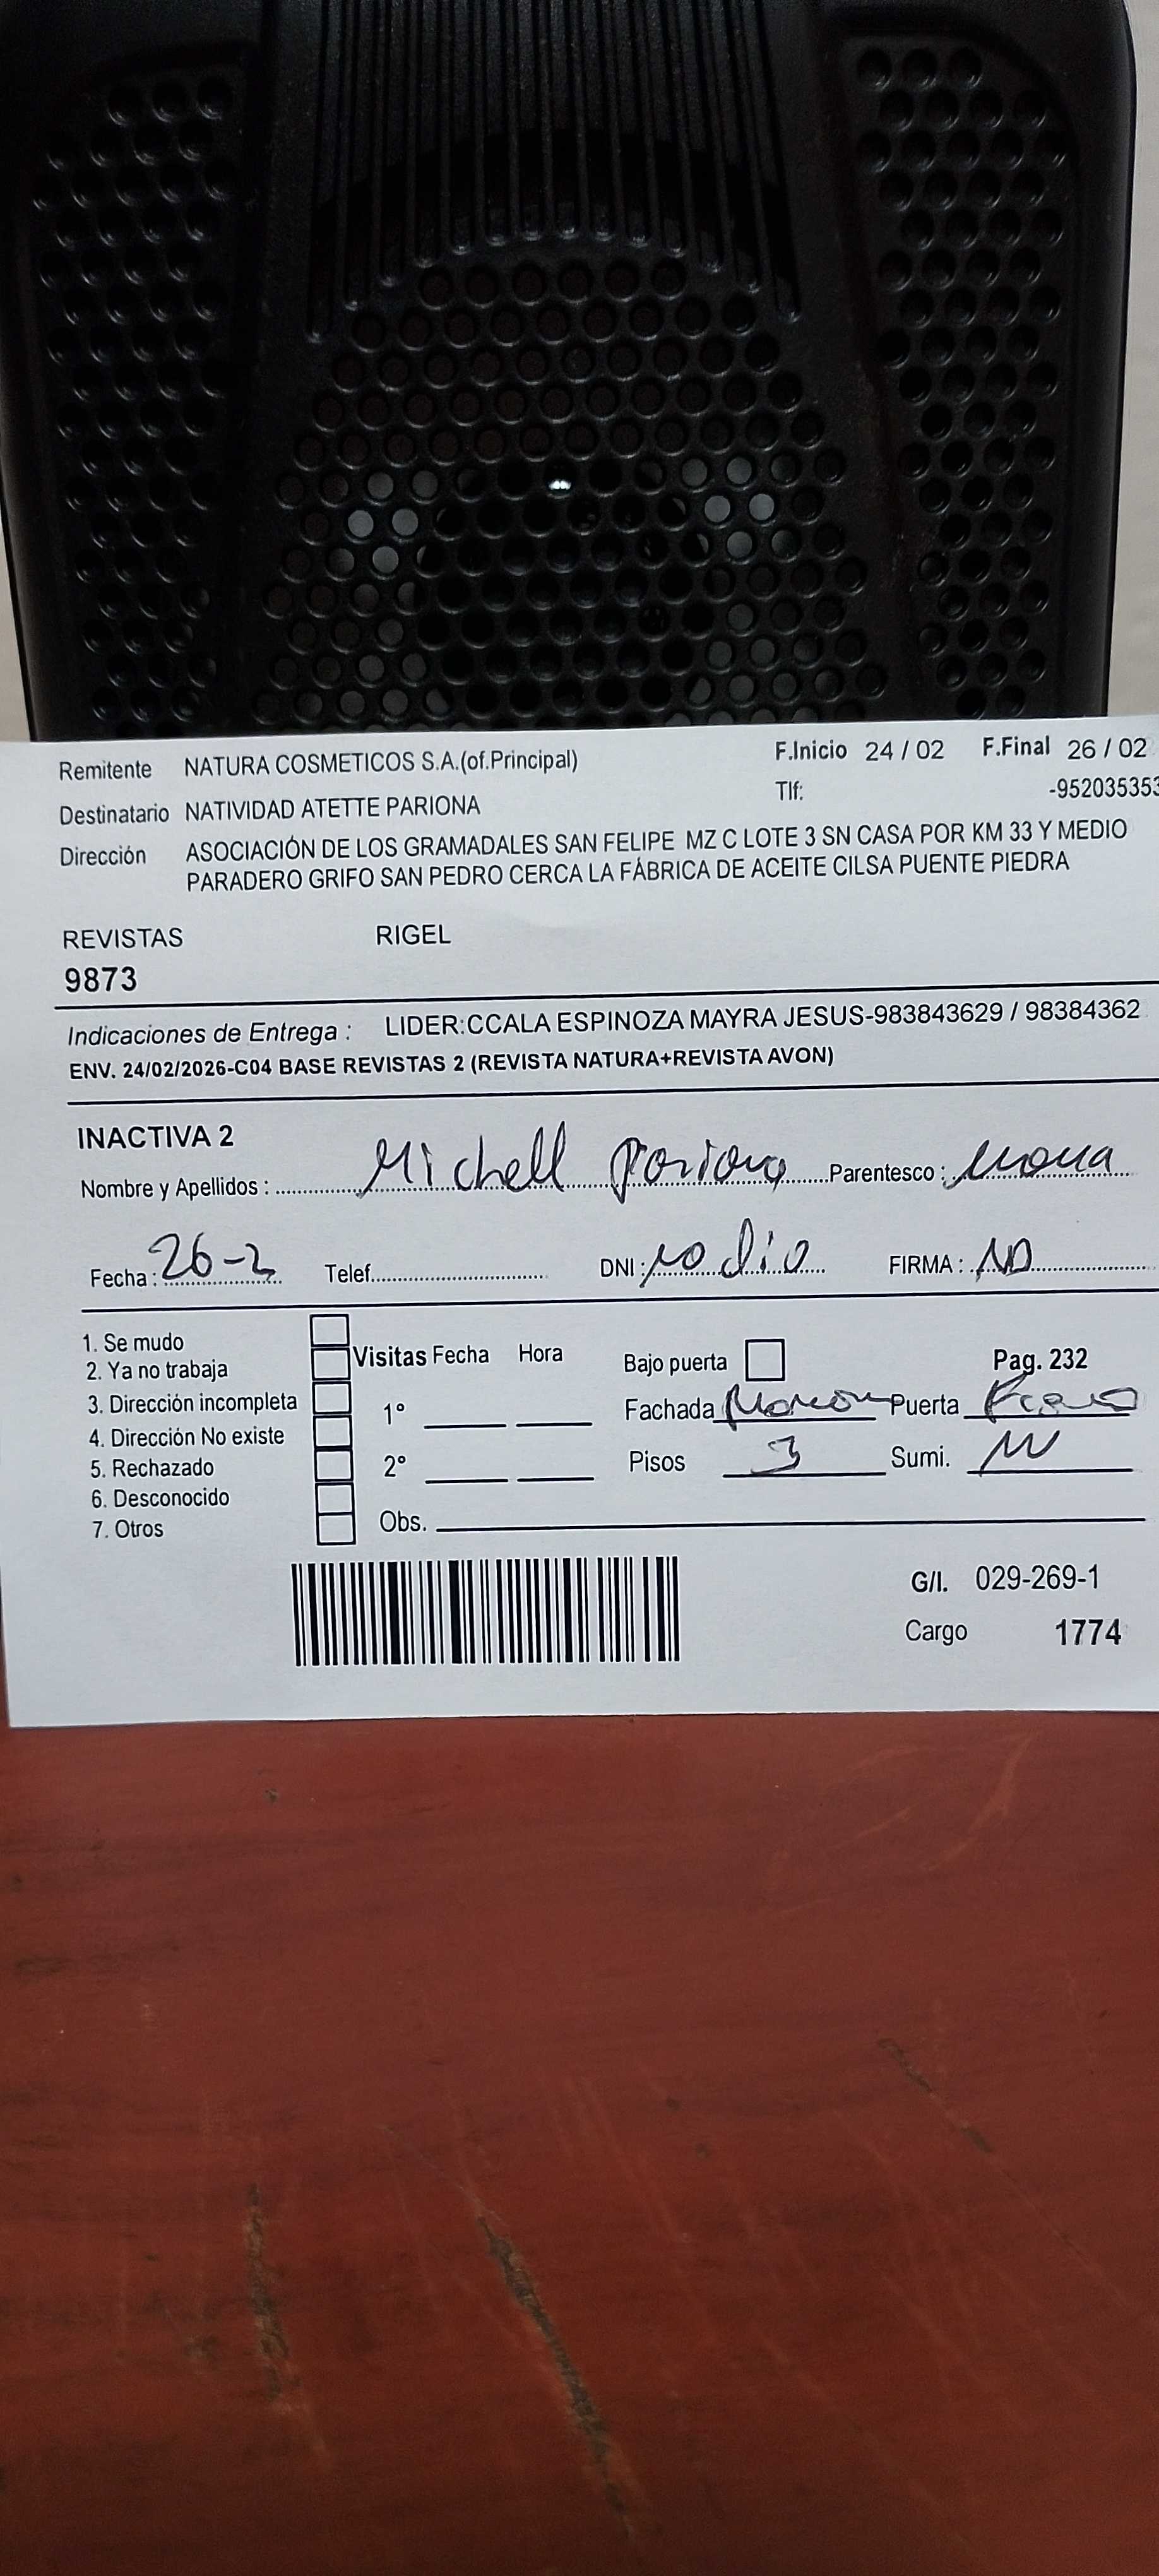 Remitente NATURA COSMETICOS S.A.(of.Principal) F.Inicio 24 / 02 F.Final 26 / 02
Destinatario NATIVIDAD ATETTE PARIONA Tlf: -952035353
Dirección ASOCIACIÓN DE LOS GRAMADALES SAN FELIPE MZ C LOTE 3 SN CASA POR KM 33 Y MEDIO
PARADERO GRIFO SAN PEDRO CERCA LA FÁBRICA DE ACEITE CILSA PUENTE PIEDRA
REVISTAS RIGEL
9873
Indicaciones de Entrega : LIDER:CCALA ESPINOZA MAYRA JESUS-983843629 / 98384362
ENV. 24/02/2026-C04 BASE REVISTAS 2 (REVISTA NATURA+REVISTA AVON)
INACTIVA 2
Nombre y Apellidos : Michell Pariona Parentesco :
Fecha : 26-2 Telef. DNI : no dio FIRMA :
1. Se mudo
2. Ya no trabaja Visitas Fecha Hora Bajo puerta Pag. 232
3. Dirección incompleta 1° Fachada Puerta
4. Dirección No existe
5. Rechazado 2° Pisos 3 Sumi.
6. Desconocido
7. Otros Obs.
G/I. 029-269-1
Cargo 1774